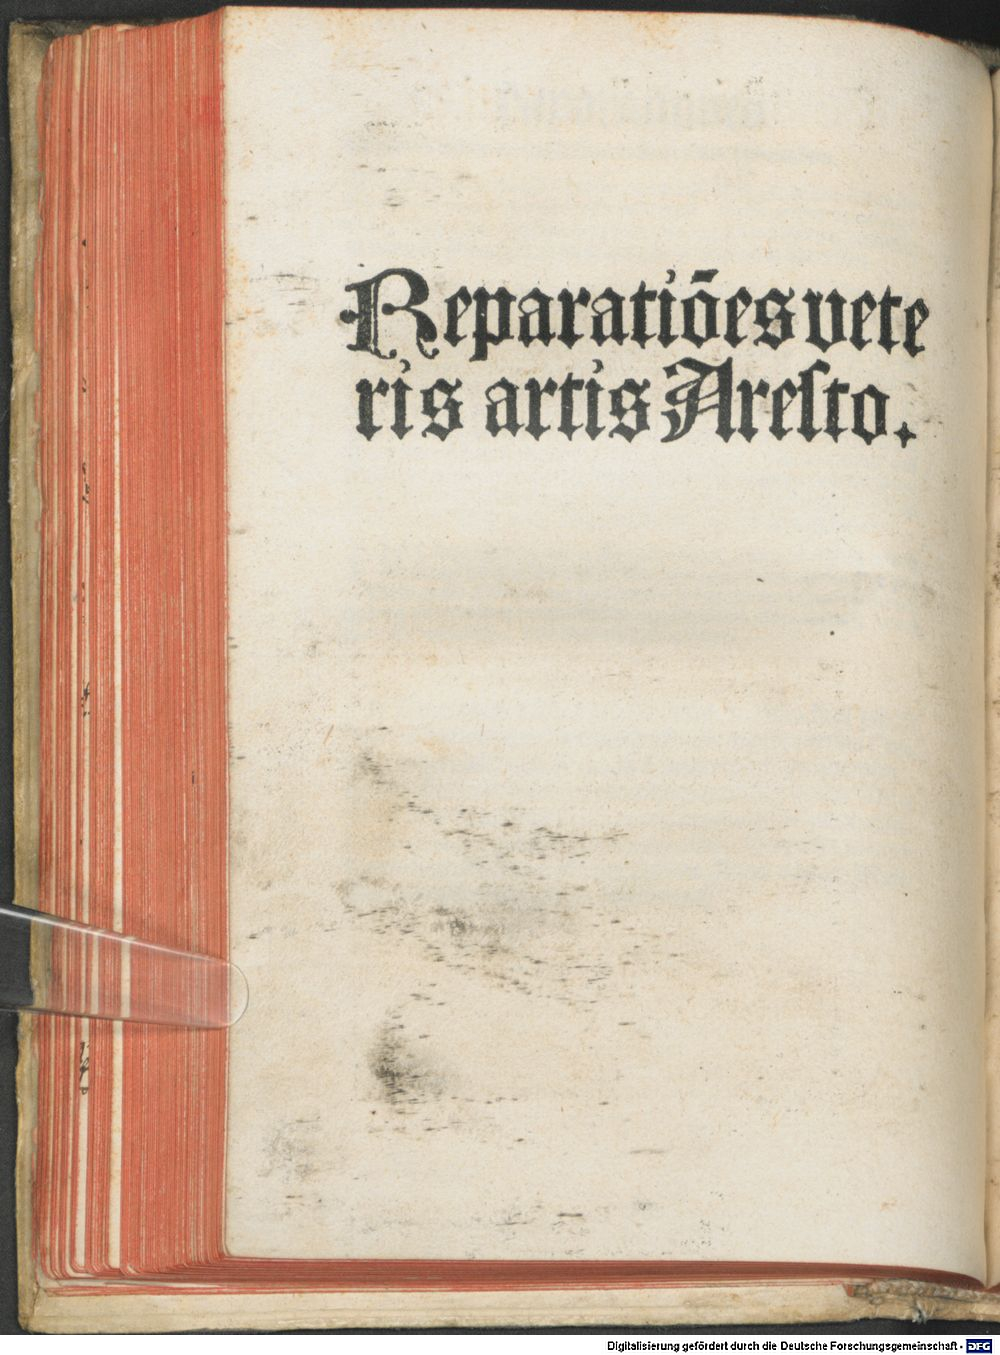 Reparatiōes vete
ris artis Areſto.
Digitalisierung gefördert durch die Deutsche Forschungsgemeinschaft - DFG